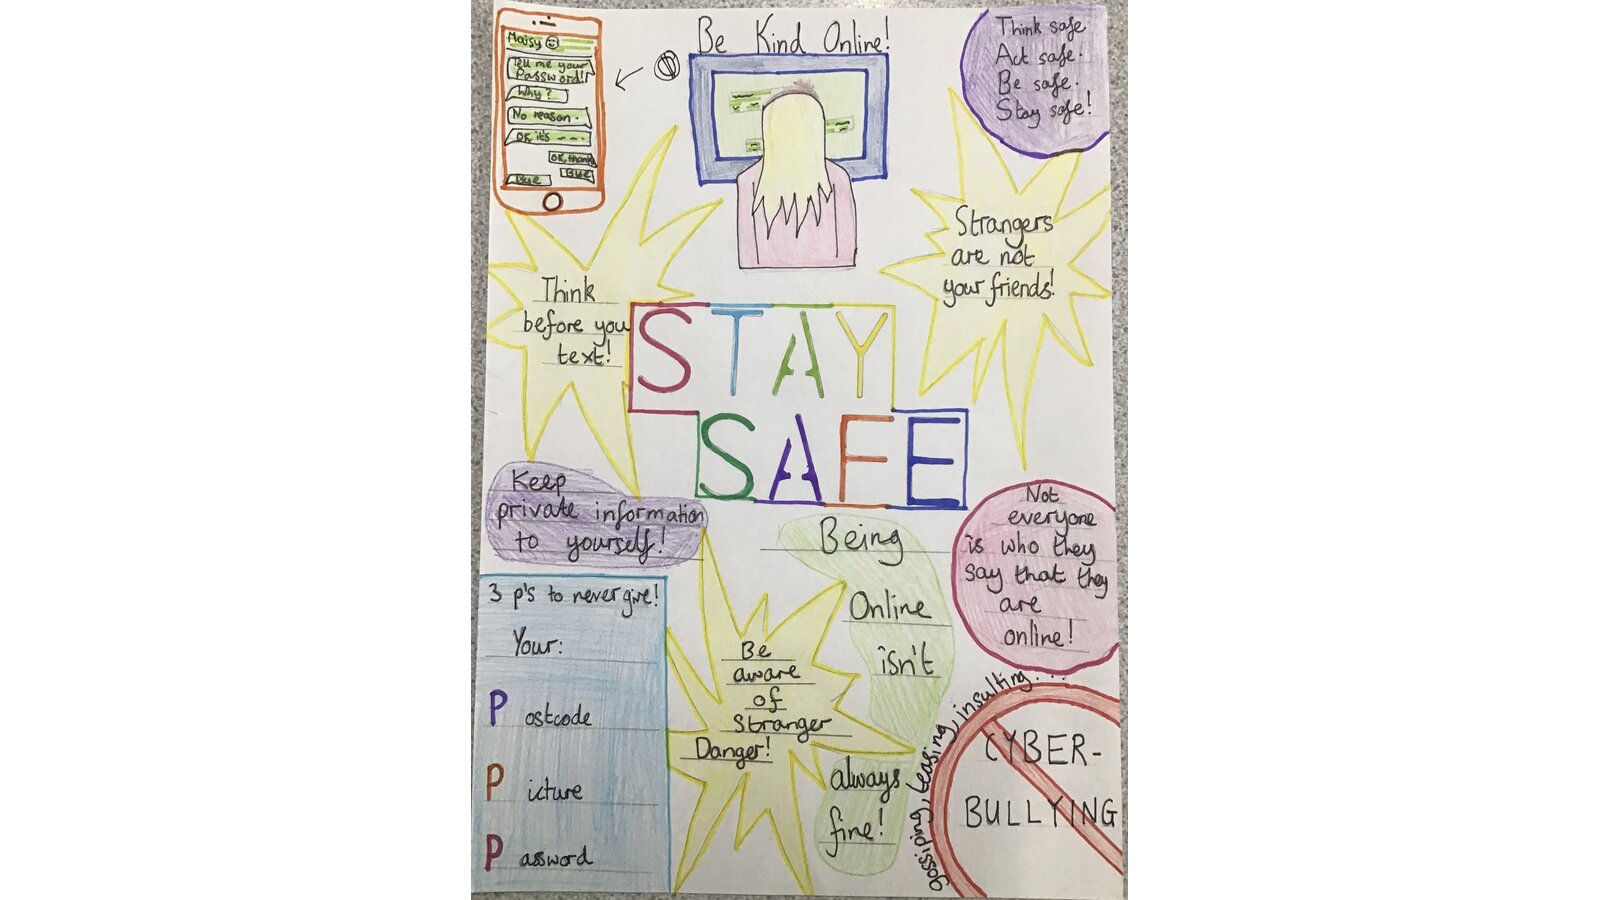 Maisy
Tell me your
Password!
Why?
No reason.
OK it's - - -
OK, thanks
Bye
Bye
Be Kind Online!
Think safe.
Act safe.
Be safe.
Stay safe!
Think
before you
text!
Strangers
are not
your friends!
STAY
SAFE
Keep
private information
to yourself!
Being
Online
isn't
always
fine!
Not
everyone
is who they
say that they
are
online!
3 p's to never give!
Your:
Postcode
Picture
Password
Be
aware
of
Stranger
Danger!
gossiping, teasing, insulting...
CYBER-
BULLYING